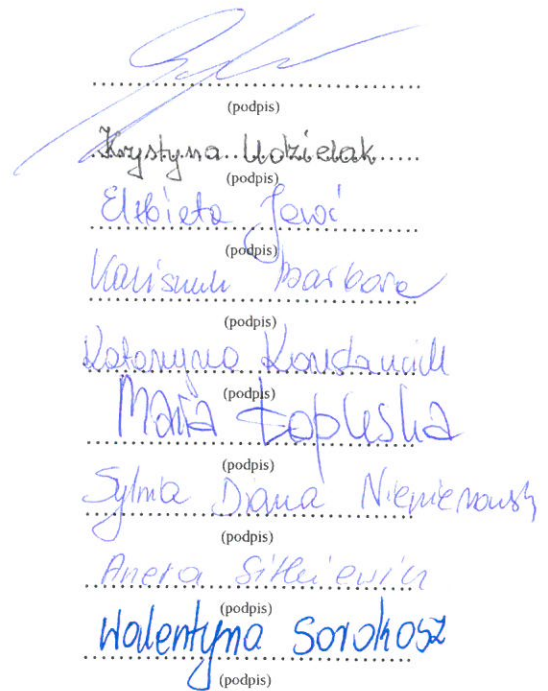 (podpis)
Krystyna Udzielak
(podpis)
Elżbieta
(podpis)
Barbara
(podpis)
Katarzyna Konstanciuk
(podpis)
Maria Łopuska
(podpis)
Sylwia Diana
(podpis)
Aneta Sitkiewicz
(podpis)
Walentyna Sorokosz
(podpis)